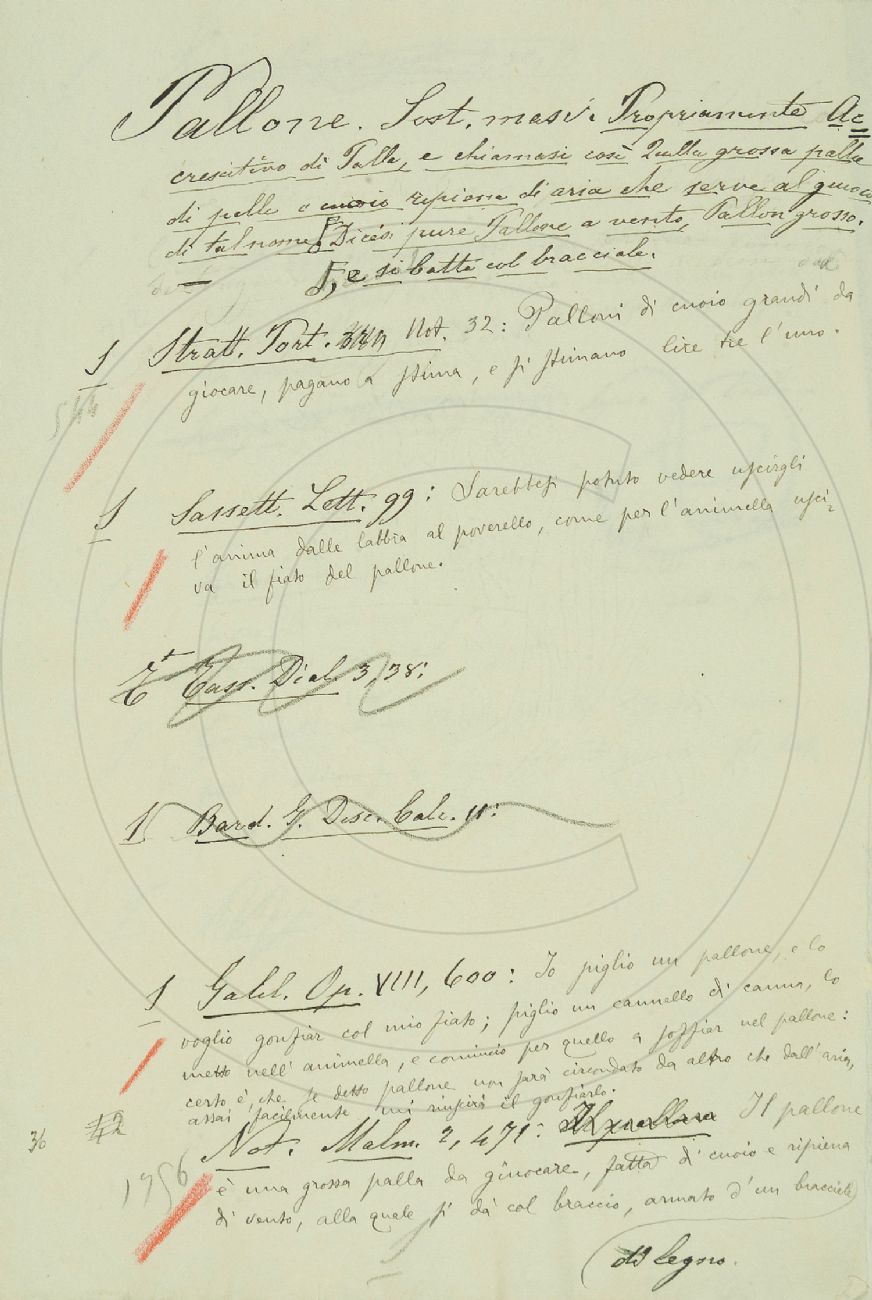 Pallone. Sost. masc. Propriamente Ac=
crescitivo di Palla, e chiamasi così Quella grossa palla
di pelle o cuoio ripiena di aria che serve al giuoco
di tal nome. Dicesi pure Pallone a vento, Pallon grosso.
, e si batte col bracciale.
1 Stratt. Port. Not. 32: Palloni di cuoio grandi da
giocare, pagano a stima, e si stimano lire tre l'uno.
1 Sassett. Lett. 99: Sarebbesi potuto vedere uscirgli
l'anima dalle labbia al poverello, come per l'animella usci-
va il fiato del pallone.
Tass. Dial. 3, 38:
1 Bard. G. Disc. Calc. 11:
1 Galil. Op. VIII, 600: Io piglio un pallone, e lo
voglio gonfiar col mio fiato; piglio un cannello di canna, lo
metto nell'animella, e comincio per quello a soffiar nel pallone:
certo è, che se detto pallone non sarà circondato da altro che dall'aria,
assai facilmente mi riuscirà il gonfiarlo.
36 Not. Malm. 2, 471: Il pallone
è una grossa palla da giuocare, fatta di cuoio e ripiena
1756 di vento, alla quale si dà col braccio, armato d'un bracciale
di legno.